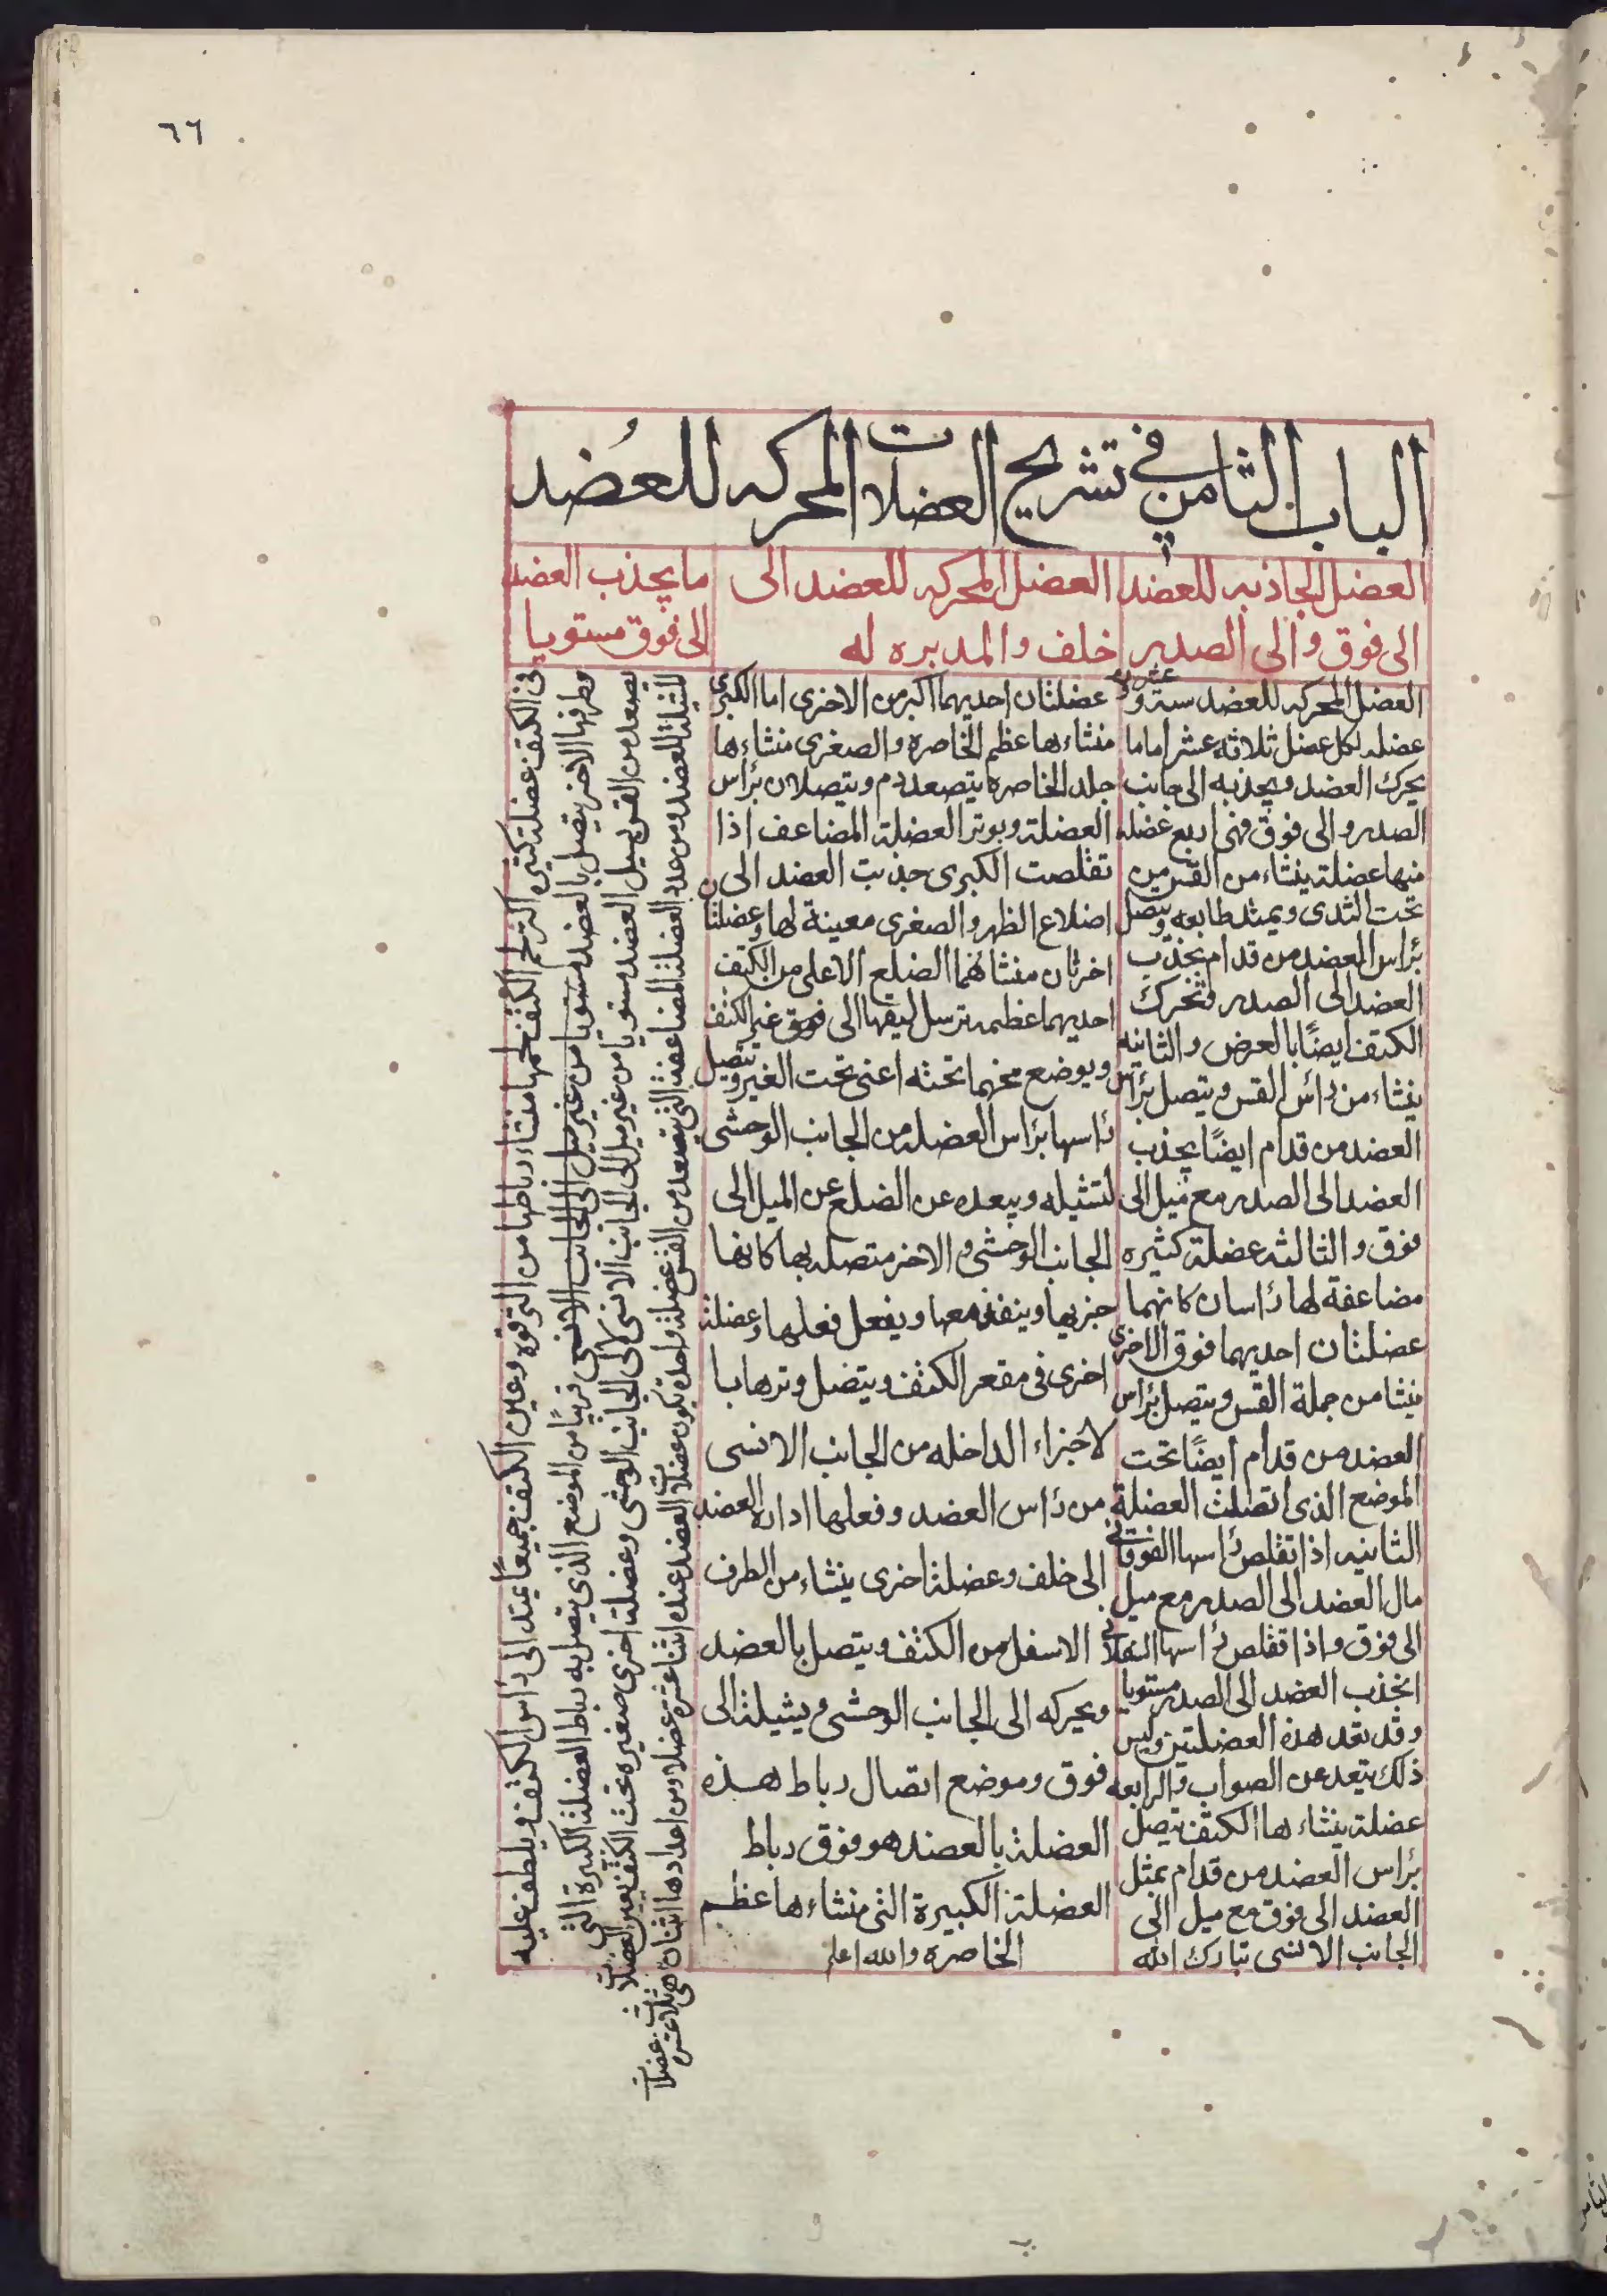 ٦٦
الباب الثامن في تشريح العضلات المحركه للعُضد
العضل الجاذبه للعضد
الى فوق والى الصدر
العضل المحركه للعضد سته وعشرون
عضله لكل عضل ثلاثه عشر اماما
يحرك العضد ويجذبه الى جانب
الصدر والى فوق فهى اربع عضله
منها عضلة ينشاء من القس من
تحت الثدى ويمتد طابعه ويتصل
برأس العضد من قدام بجذب
العضد الى الصدر وتحرك
الكتف ايضًا بالعرض والثانيه
ينشاء من رأس القس ويتصل برأس
العضد من قدام ايضًا يجذب
العضد الى الصدر مع ميل الى
فوق والثالثه عضلة كثيره
مضاعفة لها رأسان كانهما
عضلتان احديهما فوق الاخرى
منشا من جملة القس ويتصل برأس
العضد من قدام ايضًا تحت
الموضع الذى اتصلت العضلة
الثانيه اذا تقلص رأسها الفوقانى
مال العضد الى الصدر مع ميل
الى فوق واذا تقلص رأسها السفلانى
انجذب العضد الى الصدر مستويا
وقد تعد هذه العضلتين وليس
ذلك يتعد عن الصواب والرابعه
عضلة ينشاء ها الكتف يتصل
برأس العضد من قدام يمثل
العضد الى فوق مع ميل الى
الجانب الانسى تبارك الله
العضل المحركه للعضد الى
خلف والمديره له
عضلتان احديهما اكبر من الاخرى اما الكبرى
منشاءها عظم الخاصره والصغرى منشاءها
جلد الخاصره يتصعد دم ويتصلان برأس
العضلة وبوتر العضلة المضاعف اذا
تقلصت الكبرى جذبت العضد الى
اضلاع الظهر والصغرى معينة لها وعضلتا
اخرتان منشاهما الضلع الاعلى من الكتف
احديهما عظيمه ترسل ليفها الى فوق عير الكتف
ويوضع تحتها تحته اعنى تحت الغير ويتصل
رأسها برأس العضله من الجانب الوحشى
لتثيله ويبعده عن الضلع عن الميل الى
الجانب الوحشى والاخر متصله بها كانها
جزيها وينفذ معها ويفعل فعلها وعضلة
اخرى فى مقعر الكتف ويتصل وترها با
لاجزاء الداخله من الجانب الانسى
من رأس العضد وفعلها اداره العضد
الى خلف وعضلة اخرى ينشاء من الطرف
الاسفل من الكتف ويتصل بالعضد
ويحركه الى الجانب الوحشى ويثيلة الى
فوق وموضع اتصال رباط هذه
العضلة بالعضد هو فوق رباط
العضلة الكبيرة التى منشاء ها عظم
الخاصره والله اعلم
ما يجذب العضد
الى فوق مستويا
فى الكتف عضلة كثيره اللحم الكتف لحمها منشاء رباطها من الترقوه وعين الكتف جميعًا يمتد الى رأس الكتف ويلطف عليه
وطرفها الاخر يتصل بالعضد مستويا من غير ميل الى الجانب الانسى قريبًا من الموضع الذى يتصل به رباط العضلة الكبيرة التى
يصعد من القس يسيل العضد مستويا من غير ميل الى الجانب الانسى الى الجانب الوحشى وعضلة اخرى صغيره تحت الكتف يعين العضلات
المثيلة للعضد ومن عدد العضلة المضاعفة التى تصعد من القس عضلة واحدة تكون عضلات العضد عنده اثنا عشره عضلا ومن اعدادها اثنان هى ثلاث عشره عضلات